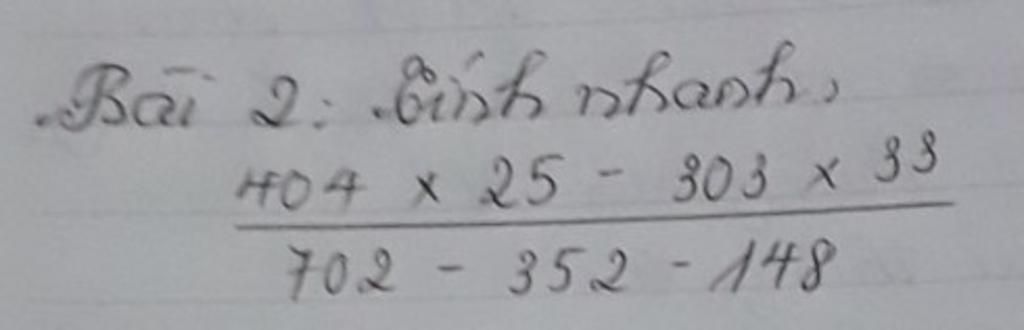 Bài 2: Tính nhanh,
404 x 25 - 303 x 33
702 - 352 - 148